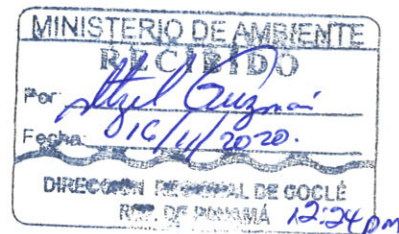 MINISTERIO DE AMBIENTE
RECIBIDO
Por: Itzel Guzmán
Fecha: 016/11/2020.
DIRECCIÓN REGIONAL DE COCLÉ
REP. DE PANAMÁ 12:24pm